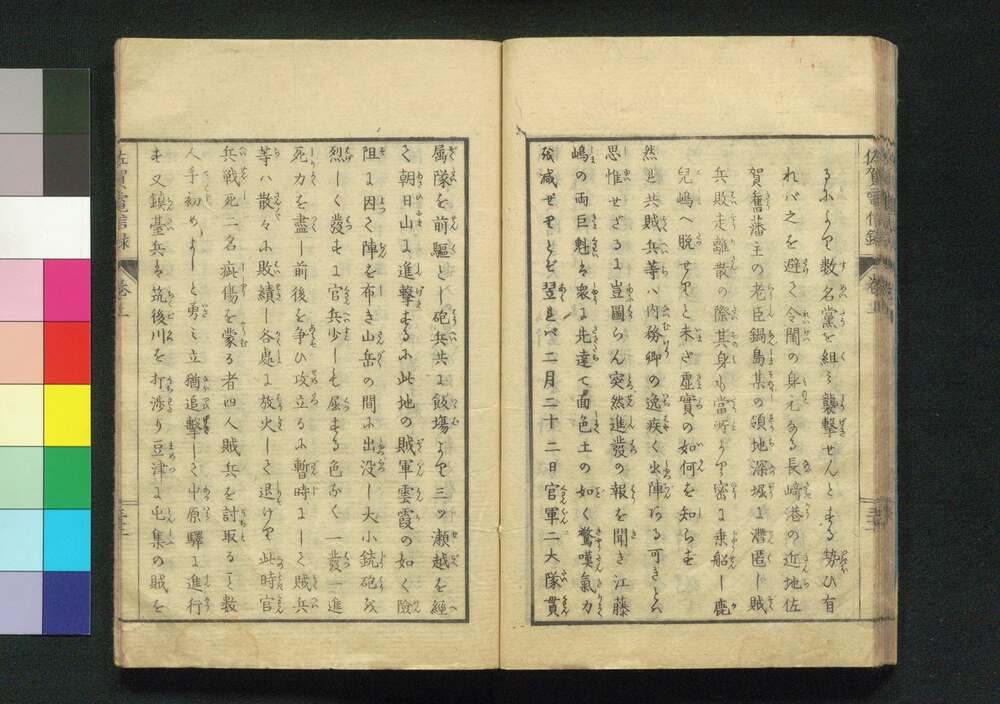 るふより数名黨を組ミ襲撃せんとする勢ひ有
れバ之を避て令聞の身元なる長﨑港の近地佐
賀舊藩主の老臣鍋島某の領地深堀に潜匿し賊
兵敗走離散の際其身も當所より密に乗船し鹿
兒嶋へ脱せりと未だ虚實の如何を知らず
然共賊兵等ハ内務卿の逸疾く出陣ある可きとハ
思惟せざるに豈圖らん突然進發の報を聞き江藤
嶋の両巨魁も衆に先達て面色土の如く驚嘆氣力
減ぜせりとぞ翌レバ二月二十二日官軍二大隊貫
属隊を前驅とし砲兵共に飯塲より三ツ瀬越を經
く朝日山に進撃するふ此地の賊軍雲霞の如く險
阻に因て陣を布き山岳の間に出没し大小銃砲を
烈しく發すに官兵少しも屈する色なく一發一進
死力を盡し前後を争ひ攻立るふ暫時にして賊兵
等ハ散々に敗績し各處に放火して退けり此時官
兵戦死二名疵傷を蒙る者四人賊兵を討取る丁数
人手初めよしと勇ミ立猶追撃して中原驛に進行
す又鎮臺兵も筑後川を打渉り豆津に屯集の賊を
佐賀電信録
卷上